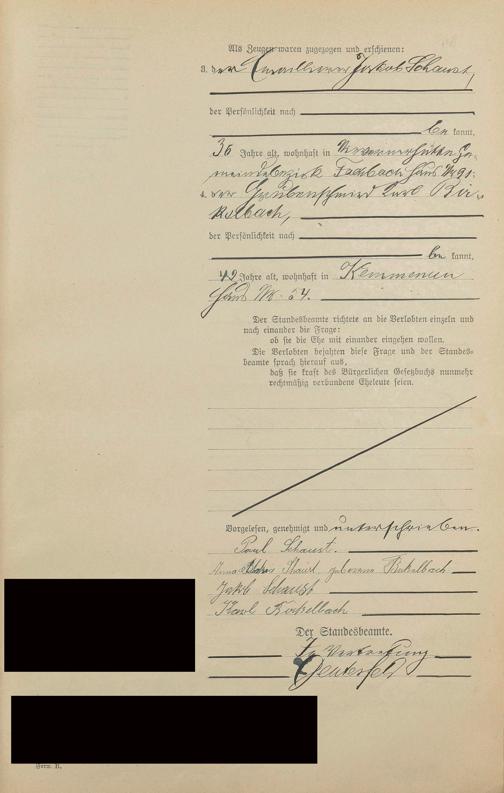 Als Zeugen waren zugezogen und erschienen:
3. der Jakob Schaust,
der Persönlichkeit nach
be kannt,
36 Jahre alt, wohnhaft in Ge-
meindebezirk Fachbach Haus No 91.
4. der Grubenschmied Karl Bir-
kelbach,
der Persönlichkeit nach
be kannt,
42 Jahre alt, wohnhaft in Kemmenau
Haus No. 54.
Der Standesbeamte richtete an die Verlobten einzeln und
nach einander die Frage:
ob sie die Ehe mit einander eingehen wollen.
Die Verlobten bejahten diese Frage und der Standes-
beamte sprach hierauf aus,
daß sie kraft des Bürgerlichen Gesetzbuchs nunmehr
rechtmäßig verbundene Eheleute seien.
Vorgelesen, genehmigt und unterschrieben.
Paul Schaust.
Anna Schaust geborene Birkelbach
Jakob Schaust
Karl Birkelbach
Der Standesbeamte.
In Vertretung
Form. B.